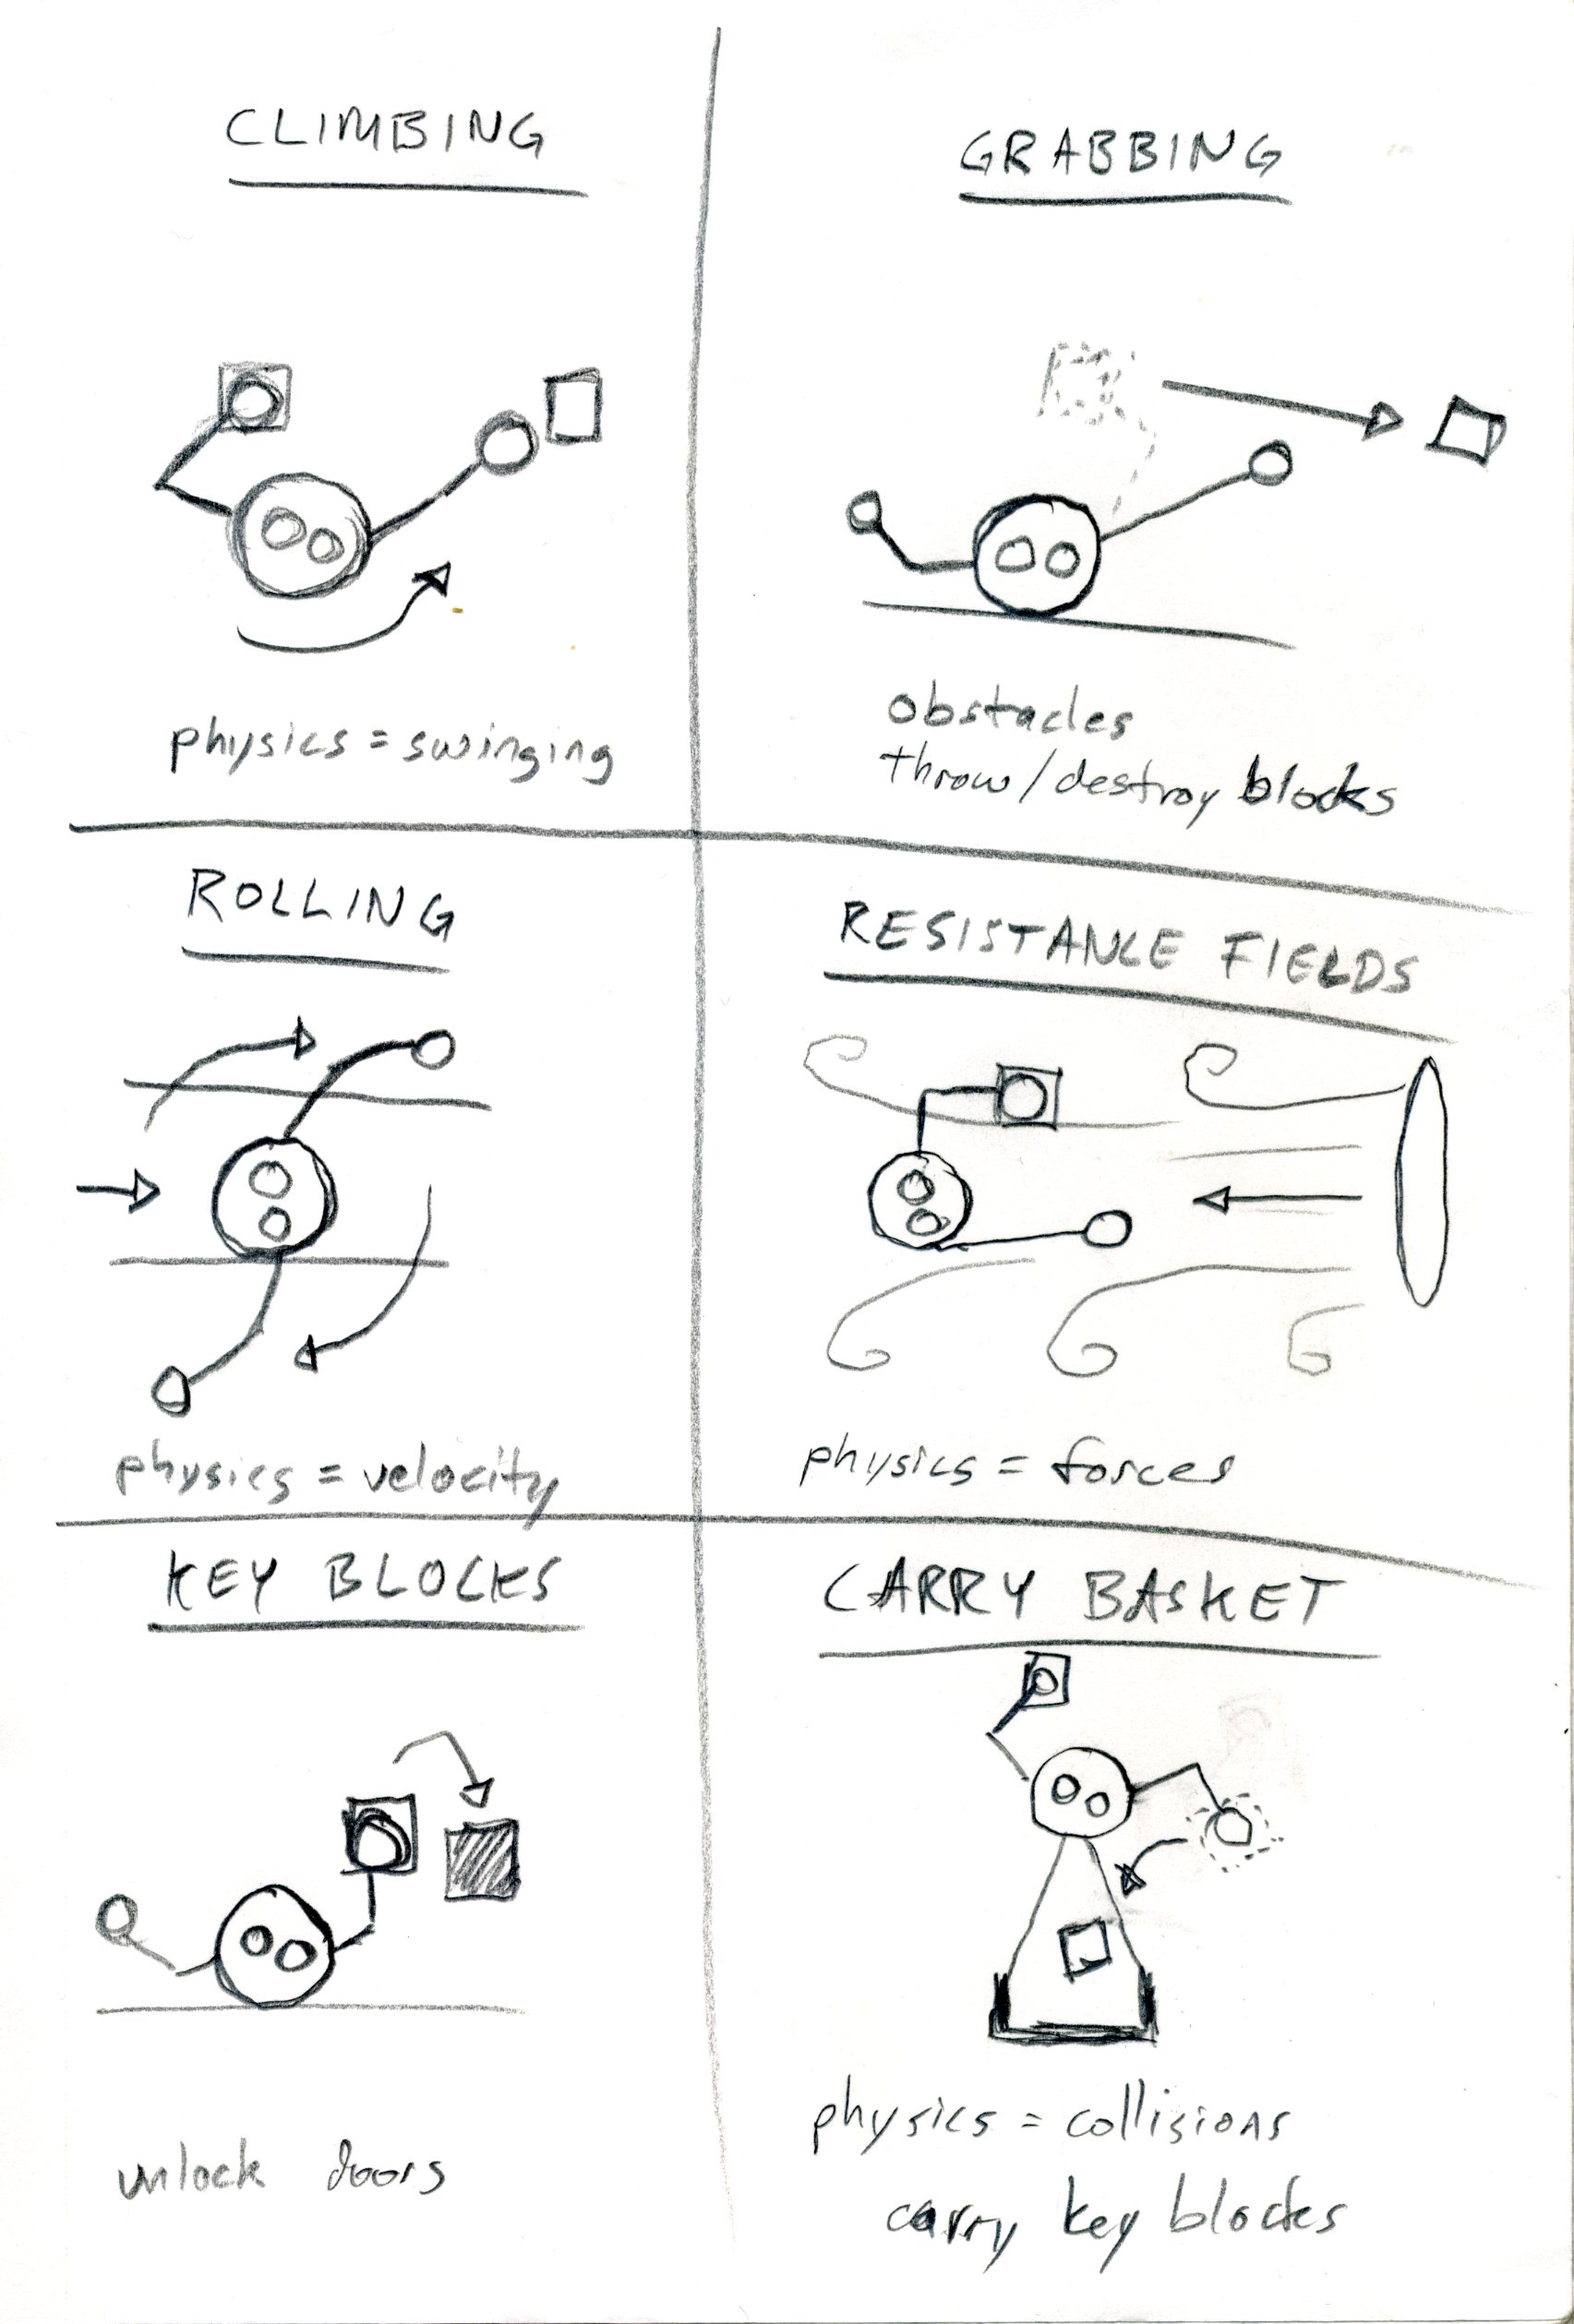 CLIMBING
physics = swinging
GRABBING
obstacles
throw/destroy blocks
ROLLING
physics = velocity
RESISTANCE FIELDS
physics = forces
KEY BLOCKS
unlock doors
CARRY BASKET
physics = collisions
carry key blocks